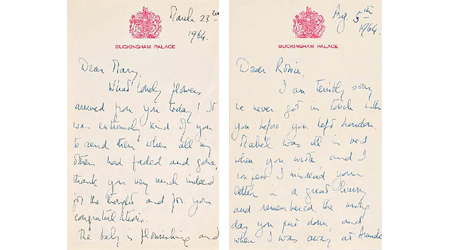 March 23rd
1964.
BUCKINGHAM PALACE
Dear Mary,
What lovely flowers
arrived from you today! It
was extremely kind of you
to send them when all my
others had faded and gone,
thank you very much indeed
for the and for your
congratulations.
The baby is flourishing and
Aug 5th
1964.
BUCKINGHAM PALACE
Dear Rosie,
I am terribly sorry
we never got in touch with
you before you left London.
was all in bed
when you wrote and I
I misread your
letter in a great hurry
and remembered the wrong
day you put down, and
when I was away at